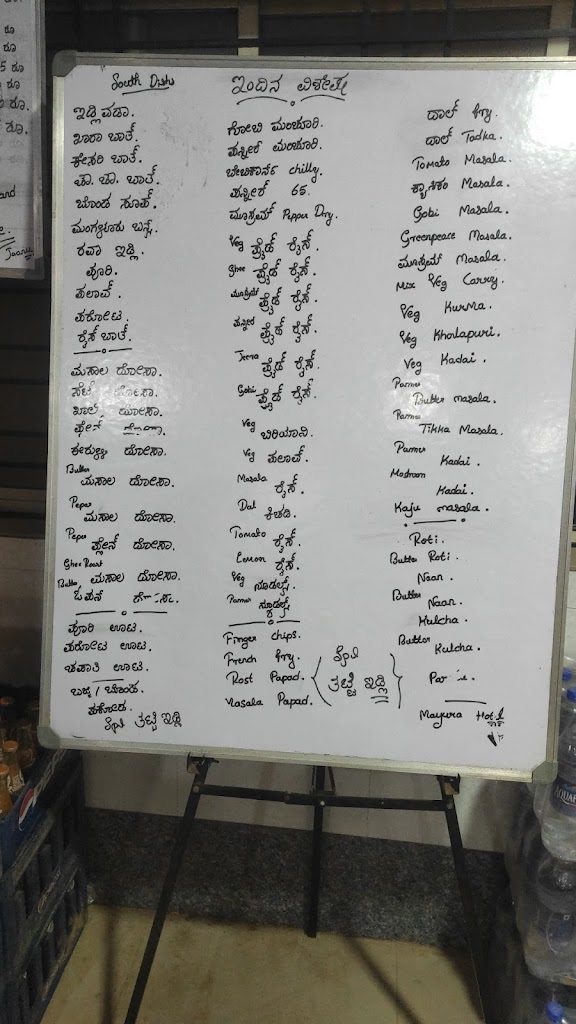 South Dishs
ಇಂದಿನ ವಿಶೇಷ
ಇಡ್ಲಿ ವಡಾ.
ಖಾರಾ ಬಾತ್.
ಕೇಸರಿ ಬಾತ್.
ಚೌ. ಚೌ. ಬಾತ್.
ಬೊಂಡ ಸೂಪ್.
ಮಂಗಳೂರು ಬನ್ಸ್.
ರವಾ ಇಡ್ಲಿ.
ಪೂರಿ.
ಪಲಾವ್.
ಪರೋಟ.
ರೈಸ್ ಬಾತ್.
ಮಸಾಲ ದೋಸಾ.
ಸೆಟ್ ದೋಸಾ.
ಖಾಲಿ ದೋಸಾ.
ಪ್ಲೇನ್
ಈರುಳ್ಳಿ ದೋಸಾ.
Butter ಮಸಾಲ ದೋಸಾ.
Peper ಮಸಾಲ ದೋಸಾ.
Peper ಪ್ಲೇನ್ ದೋಸಾ.
Ghee Roast
Butter ಮಸಾಲ ದೋಸಾ.
ಓಪನ್
ಪೂರಿ ಊಟ.
ಪರೋಟ ಊಟ.
ಚಪಾತಿ ಊಟ.
ಬಜ್ಜಿ / ಬೊಂಡ.
ಪಕೋಡ.
ತಟ್ಟೆ ಇಡ್ಲಿ
ಗೋಬಿ ಮಂಚೂರಿ.
ಪನ್ನೀರ್ ಮಂಚೂರಿ.
ಬೇಬಿಕಾರ್ನ್ chilly.
ಪನ್ನೀರ್ 65.
ಮಶ್ರೂಮ್ Pepper Dry.
Veg ಫ್ರೈಡ್ ರೈಸ್.
Ghee ಫ್ರೈಡ್ ರೈಸ್.
ಮಶ್ರೂಮ್ ಫ್ರೈಡ್ ರೈಸ್.
ಪನ್ನೀರ ಫ್ರೈಡ್ ರೈಸ್.
Jeera ಫ್ರೈಡ್ ರೈಸ್.
Gobi ಫ್ರೈಡ್ ರೈಸ್.
Veg ಬಿರಿಯಾನಿ.
Veg ಪಲಾವ್.
Masala ರೈಸ್.
Dal ಕಿಚಡಿ.
Tomato ರೈಸ್.
Lemon ರೈಸ್.
Veg ನೂಡಲ್ಸ್.
Panner ನೂಡಲ್ಸ್
Finger chips.
French fry.
Rost Papad.
Masala Papad.
ತಟ್ಟೆ ಇಡ್ಲಿ
ದಾಲ್ fry.
ದಾಲ್ Tadka.
Tomato Masala.
ಕ್ಯಾಪಸಿಕಂ Masala.
Gobi Masala.
Greenpeace Masala.
ಮಶ್ರೂಮ್ Masala.
Mix Veg Carry.
Veg Kurma.
Veg Kholapuri.
Veg Kadai.
Panner Butter masala.
Panner Tikka Masala.
Panner Kadai.
Mashroom Kadai.
Kaju masala.
Roti.
Butter Roti.
Naan.
Butter Naan.
Kulcha.
Butter Kulcha.
Mayura Hotel